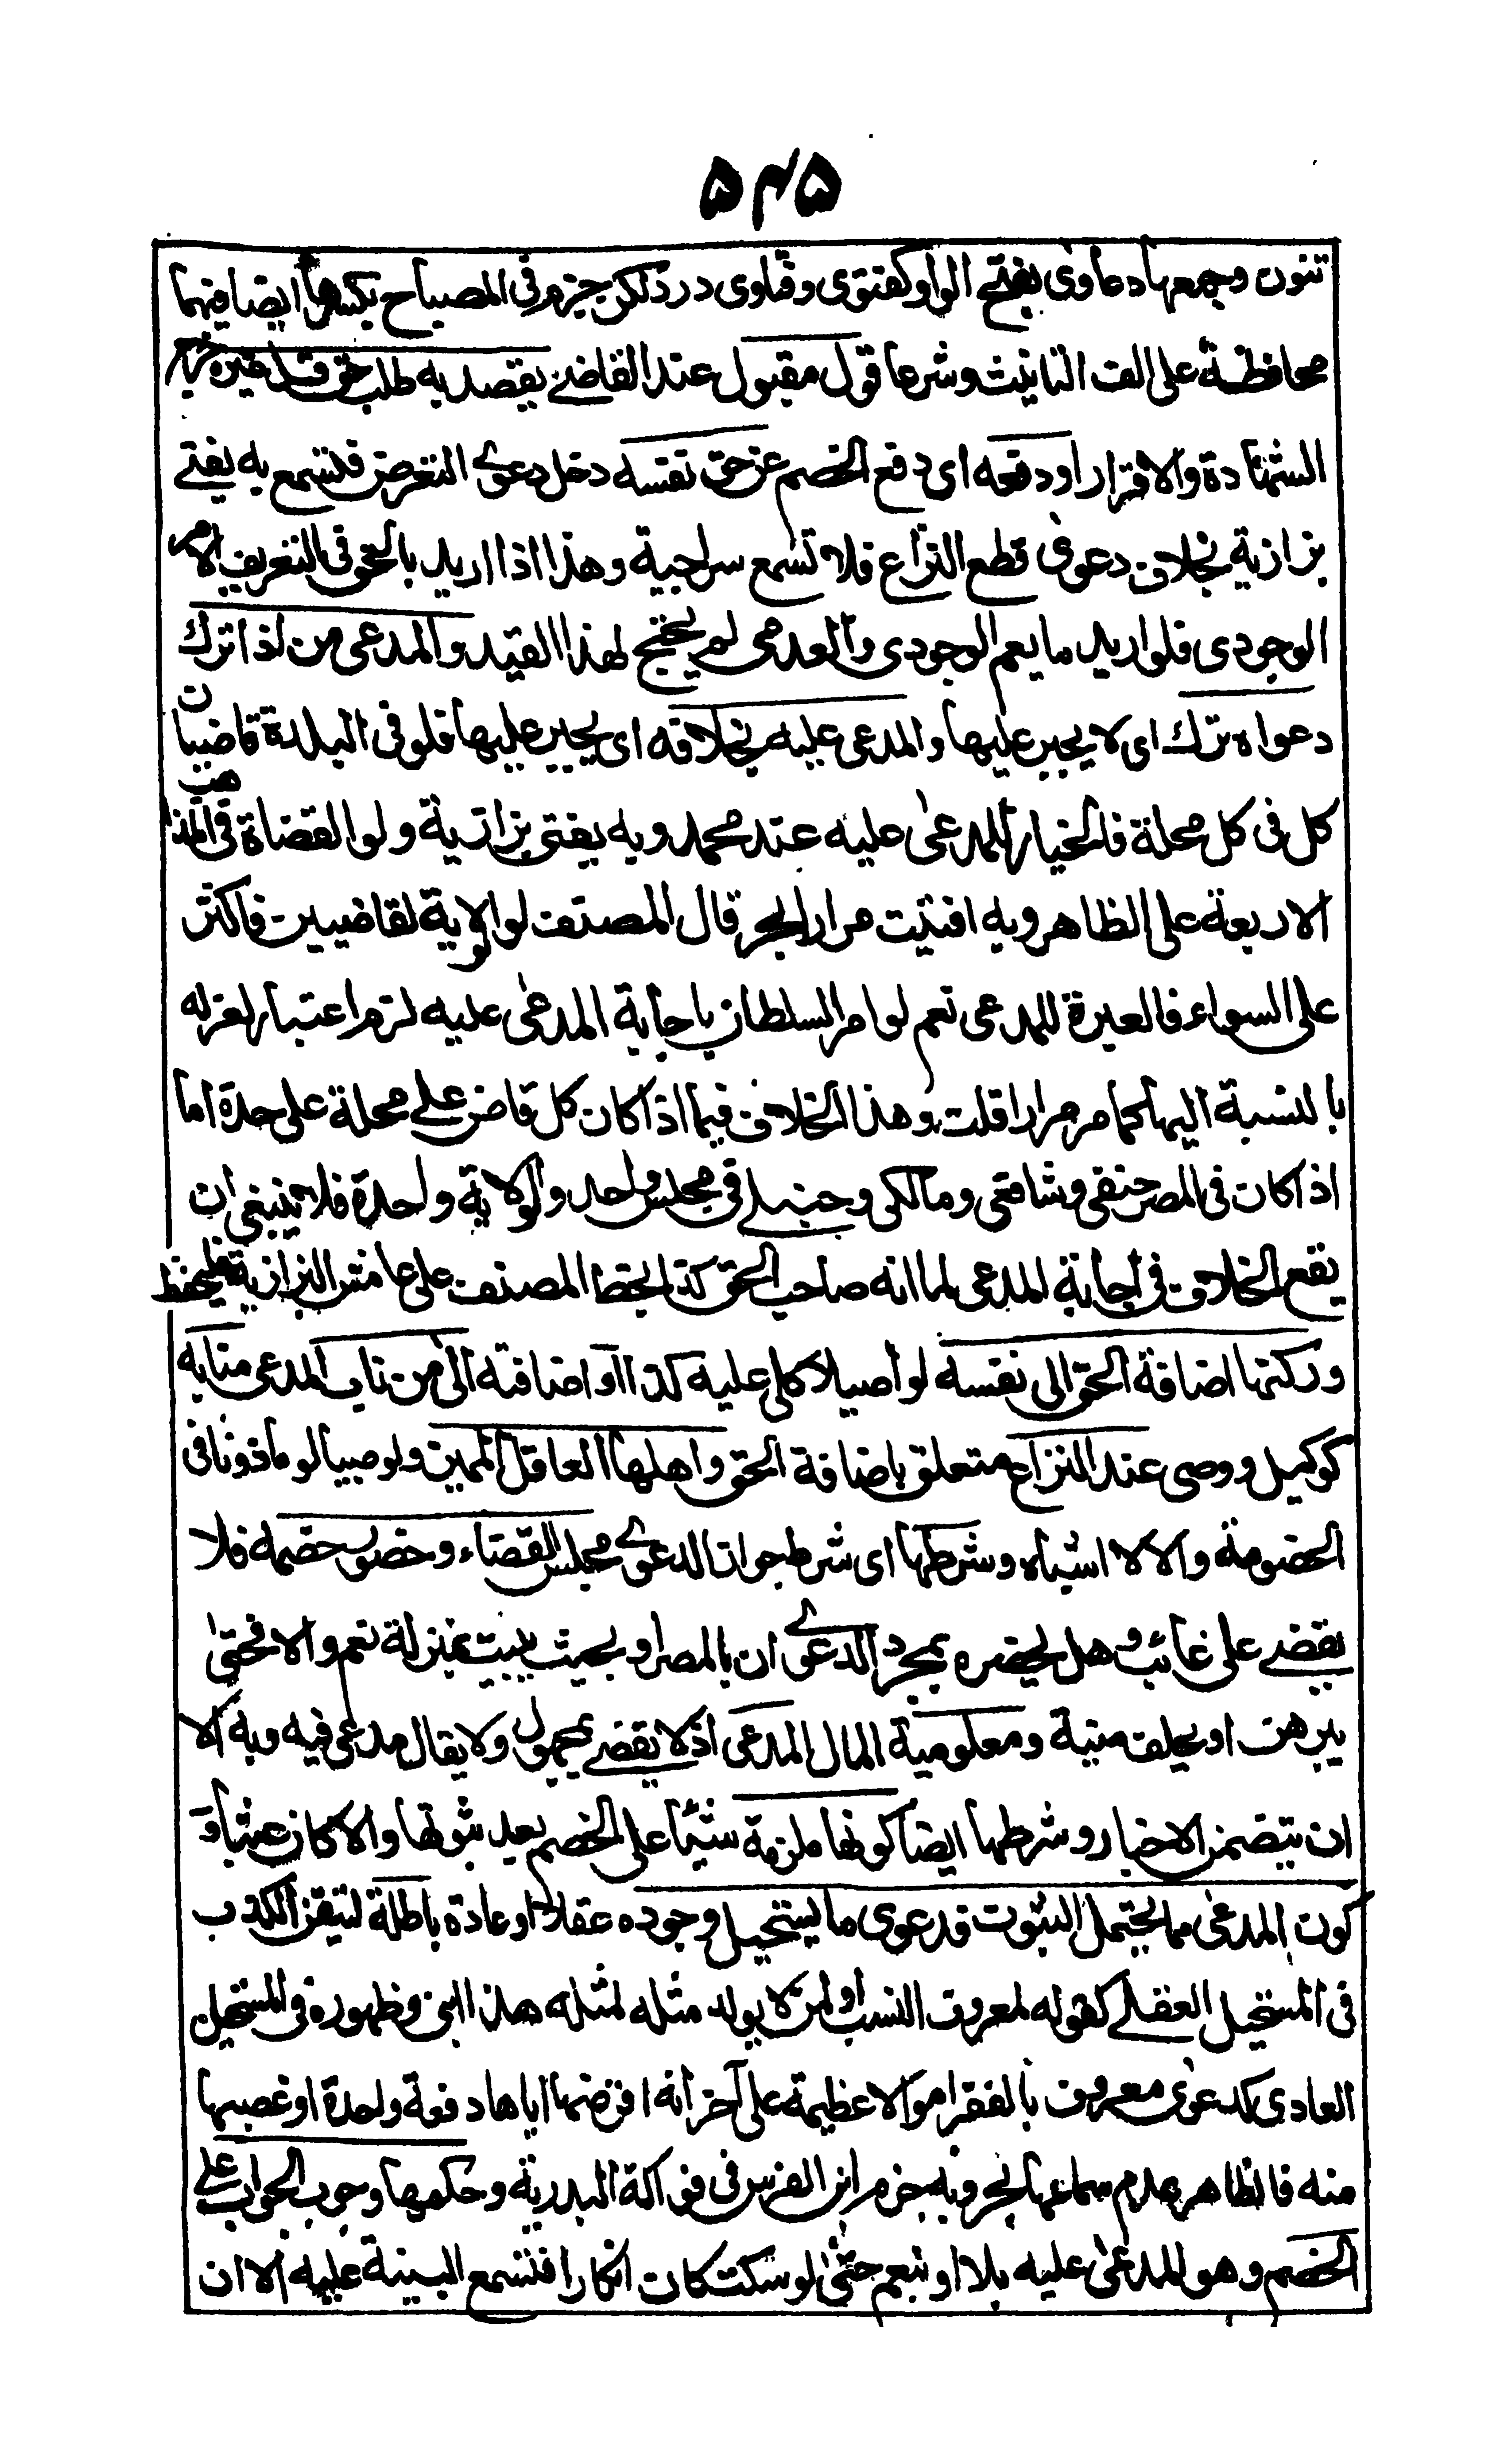 ۵۴۵
تنون وجمعها دعاوى بفتح الواو كفتوى وفتاوى درر لكن جزم فى المصباح بكسرها ايضا فيهما
محافظة على الف التانيث وشرعا قول مقبول عند القاضى يقصد به طلب حق قبل غيره خرج
الشهادة والاقرار او دفعه اى دفع الخصم عن حق نفسه دخل دعوى التعرض فتسمع به يفتى
بزازية بخلاف دعوى قطع النزاع فلا تسمع سراجية وهذا اذا اريد بالحق فى التعريف الامر
الوجودى فلو اريد ما يعم الوجودى والعدمى لم يحتج لهذا القيد والمدعى من اذا ترك
دعواه ترك اى لا يجبر عليها والمدعى عليه بخلافه اى يجبر عليها فلو فى البلدة قاضيان
كل فى كل محلة فالخيار للمدعى عليه عند محمد وبه يفتى بزازية ولو القضاة فى المذاهب
الاربعة على الظاهر وبه افتيت مرارا بحر قال المصنف لو الولاية لقاضيين فاكثر
على السواء فالعبرة للمدعى نعم لو امر السلطان باجابة المدعى عليه لزم اعتباره لعزله
بالنسبة اليها كما مر مرارا قلت وهذا الخلاف فيما اذا كان كل قاض على محلة على حدة اما
اذا كان فى المصر حنفى وشافعى ومالكى وحنبلى فى مجلس واحد والولاية واحدة فلا ينبغى ان
يقع الخلاف فى اجابة المدعى لما انه صاحب الحق كذا بخط المصنف على هامش البزازية فليحفظ
وركنها اضافة الحق الى نفسه لو اصيلا كلى عليه كذا او اضافته الى من ناب المدعى منابه
كوكيل ووصى عند النزاع متعلق باضافة الحق واهلها العاقل المميز ولو صبيا لو ماذونا فى
الخصومة والا لا اشباه وشرطها اى شرط جواز الدعوى مجلس القضاء وحضور خصمه فلا
يقضى على غائب وهل يحضره بمجرد الدعوى ان بالمصر او بحيث يبيت بمنزلة نعم والا فحتى
يبرهن او يحلف منية ومعلومية المال المدعى اذ لا يقضى بمجهول ولا يقال مدعى فيه وبه الا
ان يتضمن الاخبار وشرطها ايضا كونها ملزمة شيئا على الخصم بعد ثبوتها والا كان عبثا و
كون المدعى مما يحتمل الثبوت فدعوى ما يستحيل وجوده عقلا او عادة باطلة لتيقن الكذب
فى المستحيل العقلى كقوله لمعروف النسب او لمن لا يولد مثله لمثله هذا ابنى وظهوره فى المستحيل
العادى كدعوى معروف بالفقر اموالا عظيمة على آخر انه اقرضها اياها دفعة واحدة او غصبها
منه فالظاهر عدم سماعها بحر وبه جزم ابن الغرس فى فواكه البدرية وحكمها وجوب الجواب على
الخصم وهو المدعى عليه بلا او بنعم حتى لو سكت كان انكارا فتسمع البينة عليه الا ان